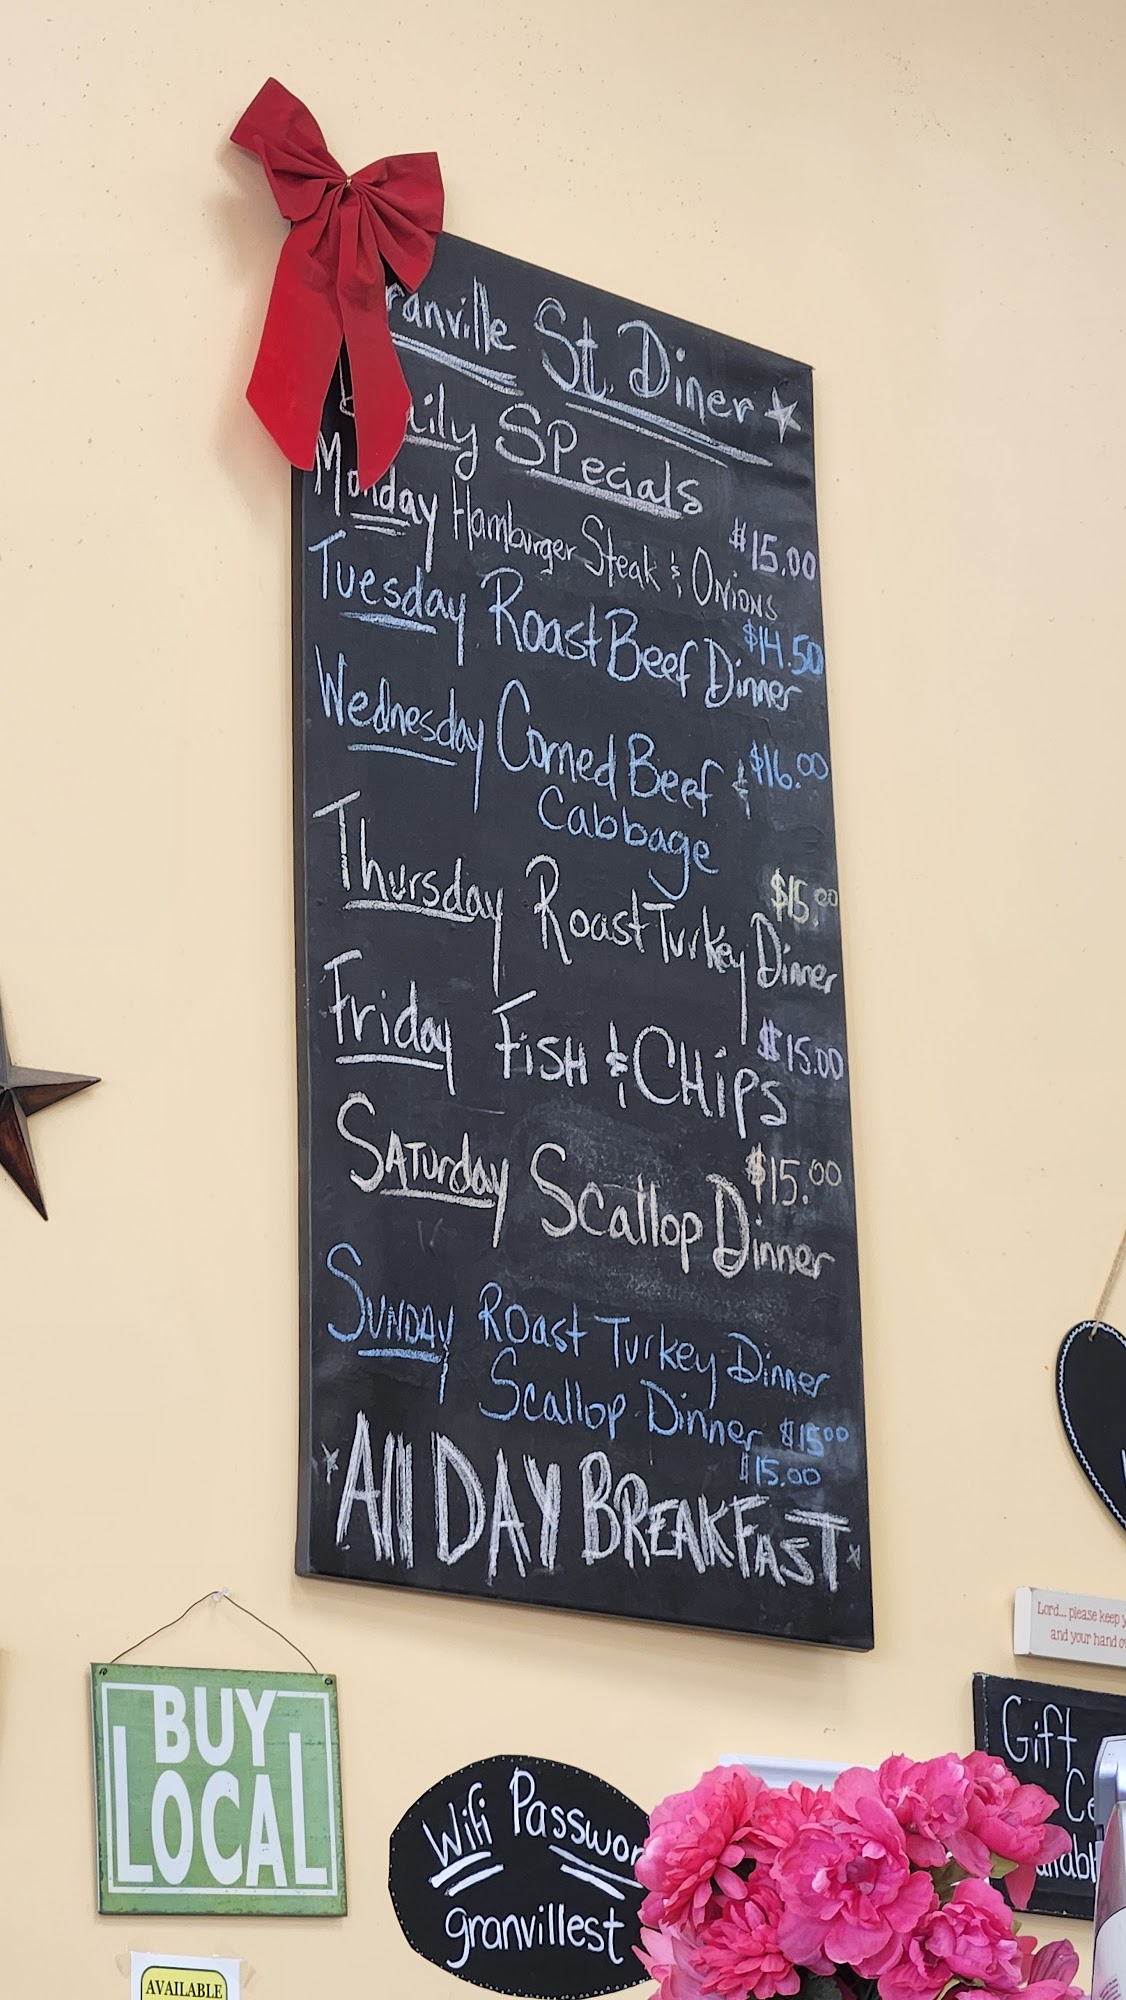 ranville St. Diner
Daily SPecials
Monday Hamburger Steak & Onions $15.00
Tuesday Roast Beef Dinner $14.50
Wednesday Corned Beef & $16.00
Cabbage
Thursday Roast Turkey Dinner $15.00
Friday FisH & CHips $15.00
Saturday Scallop Dinner $15.00
Sunday Roast Turkey Dinner
Scallop Dinner $15.00
$15.00
All DAY BREAKFAST
BUY
LOCAL
AVAILABLE
Wifi Passwor
granvillest
Lord... please keep y
and your hand o
Gift
Ce
ailabl